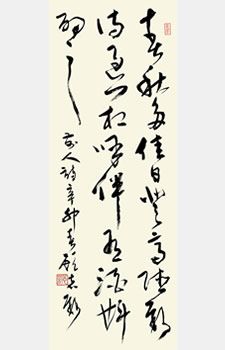 春秋多佳日登高賦新
詩過门更相呼有酒斟
酌之
人詩辛卯春